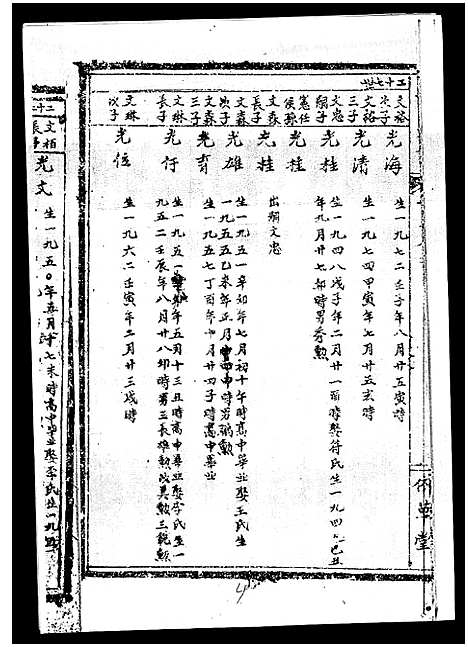 二十七世
文裕次子 光海 生一九七二壬子年八月廿五寅時
文裕三子 光清 生一九七四甲寅年七月廿五亥時
文忠嗣子 光桂 生一九四八戊子年二月廿一酉時娶符氏生一九四九己丑
年九月廿七卯時男秀勲
憲任侯孫 光桂
文森長子 光桂 出嗣文忠
文森次子 光雄 生一九五一辛卯年七月初十午時高中畢业娶王氏生
一九五五乙未年正月申時男
文森三子 光育 生一九五七丁酉年十月廿四子時高中畢业
文琳長子 光仔 生一九五一辛卯年五月十三丑時高中畢业娶李氏生一
九五二壬辰年八月廿八卯時男三長雄勲次昊勲三銳勲
文琳次子 光位 生一九六二壬寅年二月廿三戌時
草堂
二十二
文栢長子 光文 生一九五〇年五月十七未時高中畢业娶李氏生一九五